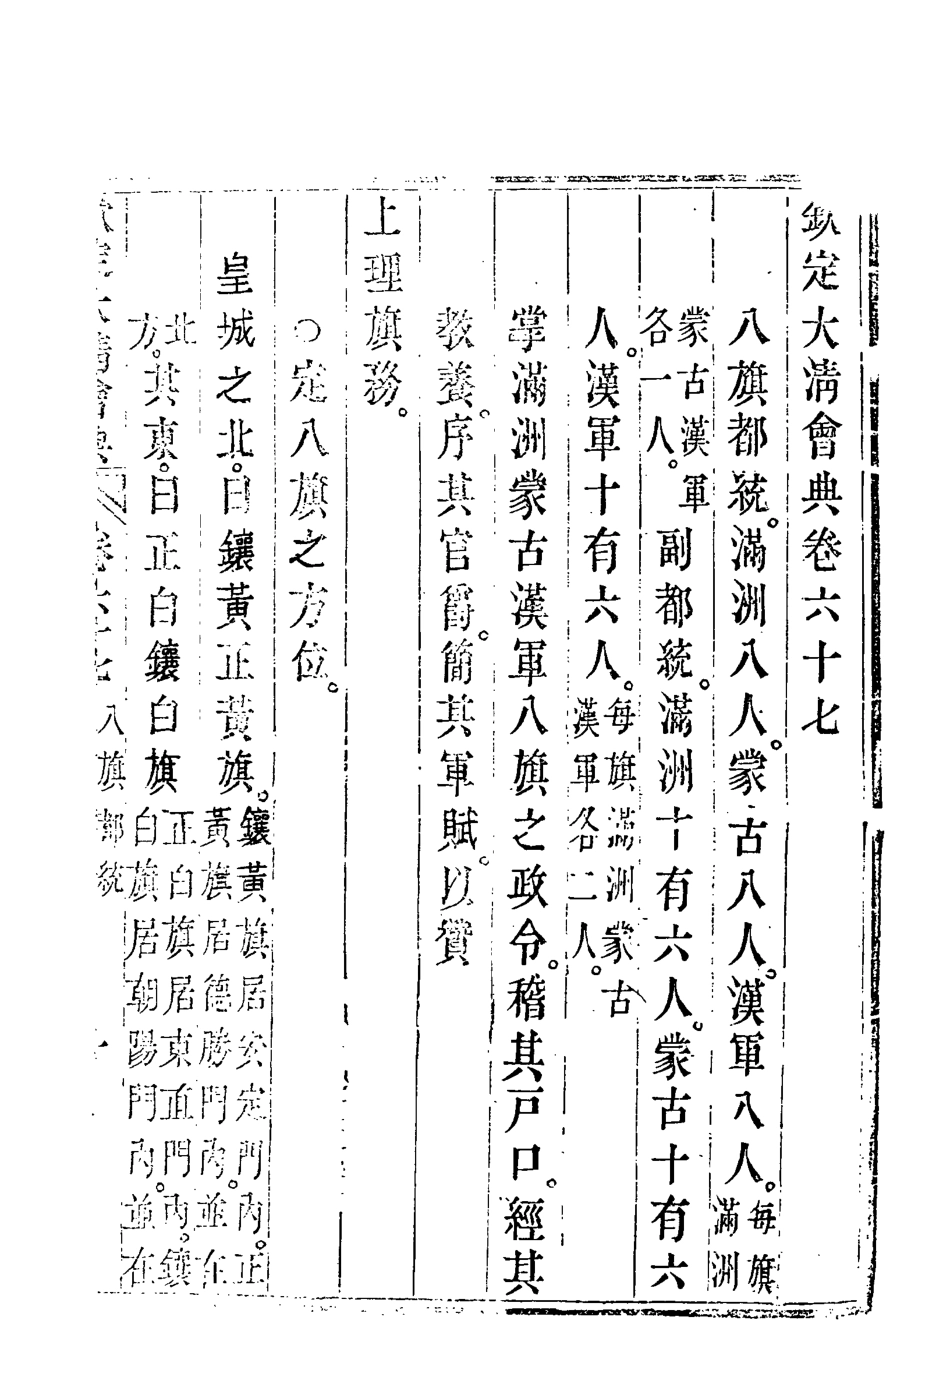 欽定大淸會典卷六十七
八旗都統。滿洲八人。蒙古八人。漢軍八人。每旗滿洲
蒙古漢軍各一人。副都統。滿洲十有六人。蒙古十有六
人。漢軍十有六人。每旗滿洲蒙古漢軍各二人。
掌滿洲蒙古漢軍八旗之政令。稽其戸口。經其
教養。序其官爵。簡其軍賦。以贊
上理旗務。
○定八旗之方位。
皇城之北。曰鑲黃正黃旗。鑲黃旗居安定門內。正黃旗居德勝門內。並在
北方。其東。曰正白鑲白旗正白旗居東直門內。鑲白旗居朝陽門內。並在
欽定大淸會典 卷六十七 八旗都統 一